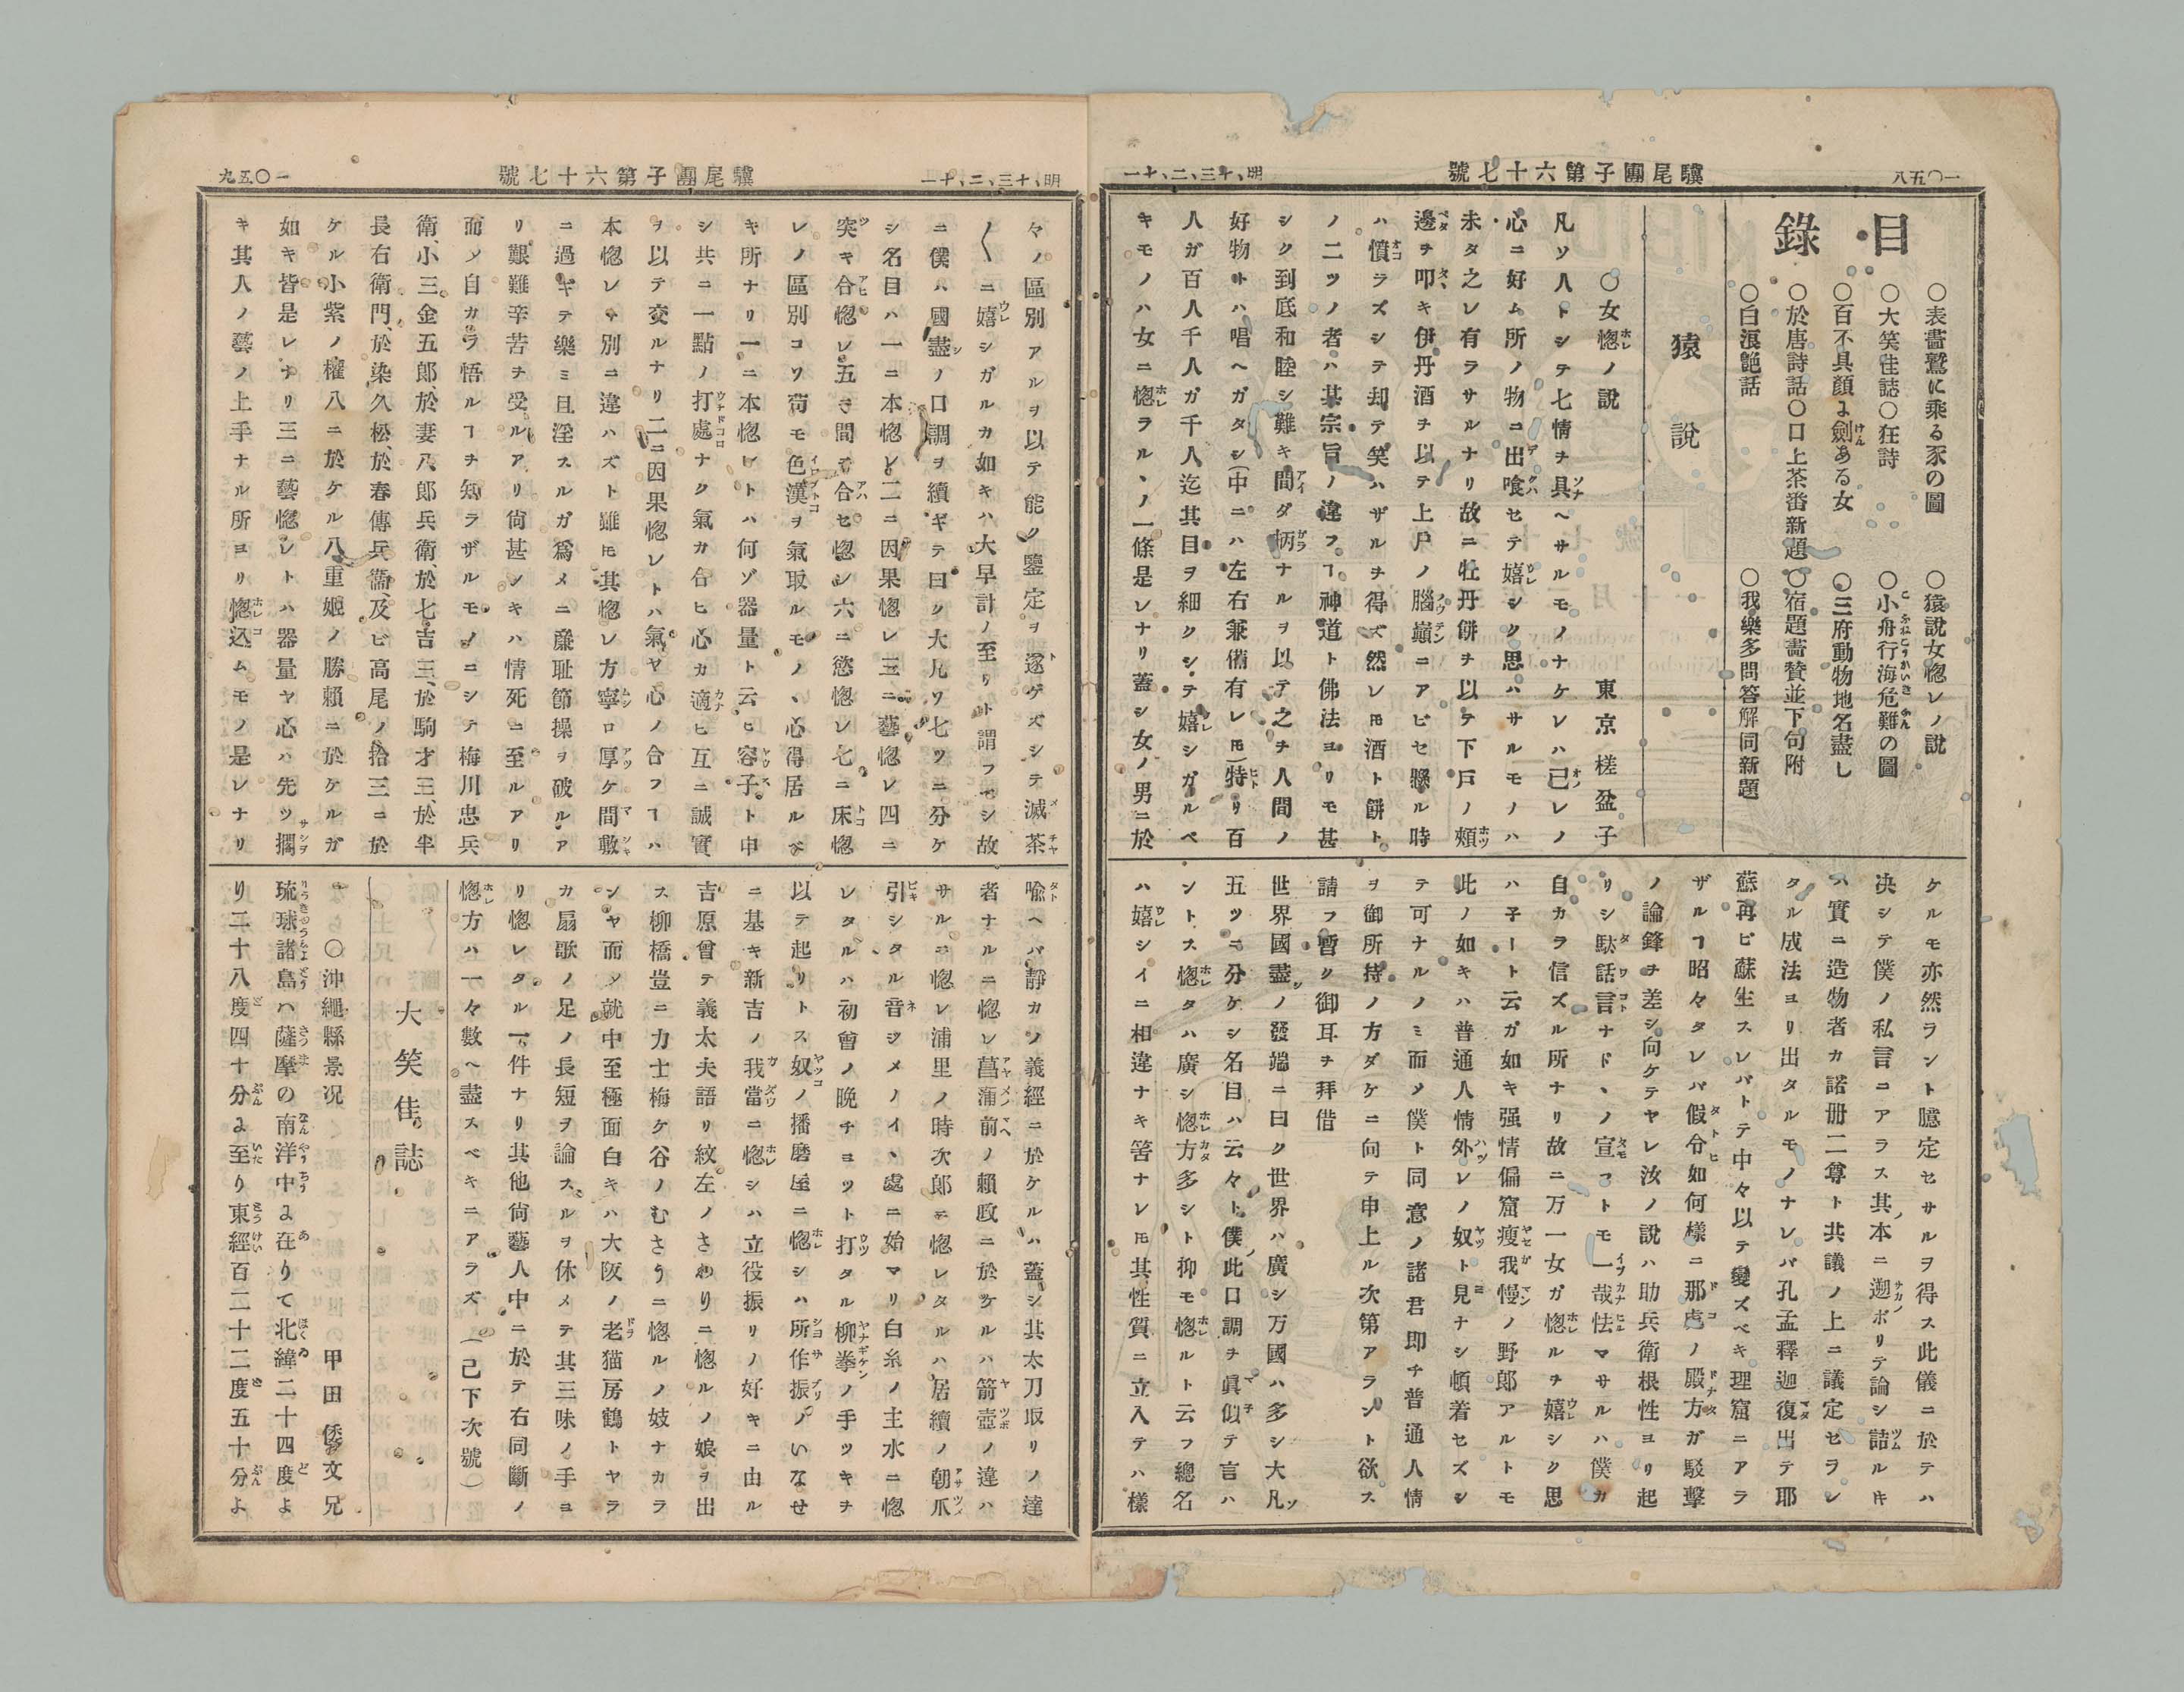 一〇五八
驥尾團子第六十七號
明、十三、二、十一
目錄
〇表畵鷲に乘る豕の圖
〇大笑佳誌〇狂詩
〇百不具顔よ劍ある女
〇於唐詩話〇口上茶番新題
〇白浪艶話
〇猿說女惚レノ說
〇小舟行海危難の圖
〇三府動物地名盡し
〇宿題畵贊並下句附
〇我樂多問答解同新題
猿說
〇女惚ノ說
東京 槎盆子
凡ソ人トシテ七情ヲ具ヘサルモノナケレハ已レノ
心ニ好ム所ノ物ニ出喰セテ嬉シク思ハサルモノハ
未タ之レ有ラサルナリ故ニ牡丹餅ヲ以テ下戸ノ頰
邊ヲ叩キ伊丹酒ヲ以テ上戸ノ腦巓ニアビセ懸ル時
ハ憤ラズシテ却テ笑ハザルヲ得ズ然レ𪜈酒ト餅ト
ノ二ツノ者ハ其宗旨ノ違フヿ神道ト佛法ヨリモ甚
シク到底和睦シ難キ間ダ柄ナルヲ以テ之ヲ人間ノ
好物トハ唱ヘガタシ(中ニハ左右兼備有レ𪜈)特リ百
人ガ百人千人ガ千人迄其目ヲ細クシテ嬉シガルベ
キモノハ女ニ惚ラルヽノ一條是レナリ蓋シ女ノ男ニ於
ケルモ亦然ラント臆定セサルヲ得ス此儀ニ於テハ
决シテ僕ノ私言ニアラス其本ニ遡ボリテ論シ詰ルキ
ハ實ニ造物者カ諾册二尊ト共議ノ上ニ議定セラレ
タル成法ヨリ出タルモノナレバ孔孟釋迦復出テ耶
蘇再ビ蘇生スレバトテ中々以テ變ズベキ理窟ニアラ
ザルヿ昭々タレバ假分如何樣ニ那處ノ殿方ガ駁擊
ノ論鋒ヲ差シ向ケテヤレ汝ノ說ハ助兵衛根性ヨリ起
リシ駄話言ナドヽノ宣フトモ一哉怯マサルハ僕カ
自カラ信ズル所ナリ故ニ万一女ガ惚ルヲ嬉シク思
ハ子ート云ガ如キ强情偏窟瘦我慢ノ野郎アルトモ
此ノ如キハ普通人情外レノ奴ト見ナシ頓着セズシ
テ可ナルノミ而メ僕ト同意ノ諸君即チ普通人情
ヲ御所持ノ方ダケニ向テ申上ル次第アラント欲ス
請フ暫ク御耳ヲ拜借
世界國盡ノ發端ニ曰ク世界ハ廣シ万國ハ多シ大凡
五ツニ分ケシ名目ハ云々ト僕此口調ヲ眞似テ言ハ
ントス惚タハ廣シ惚方多シト抑モ惚ルト云フ總名
ハ嬉シイニ相違ナキ筈ナレ𪜈其性質ニ立入テハ樣
明、十三、二、十一
驥尾團子第六十七號
一〇五九
々ノ區別アルヲ以テ能ク鑒定ヲ遂ゲズシテ滅茶
〳〵ニ嬉シガルカ如キハ大早計ノ至リト謂フベシ故
ニ僕ハ國盡ノ口調ヲ續ギテ曰ク大凡ソ七ツニ分ケ
シ名目ハ一ニ本惚レ二ニ因果惚レ三ニ藝惚レ四ニ
突キ合惚レ五ニ間ニ合セ惚レ六ニ慾惚レ七ニ床惚
レノ區別コソ苟モ色漢ヲ氣取ルモノヽ心得居ルベ
キ所ナリ一ニ本惚レトハ何ゾ器量ト云ヒ容子ト申
シ共ニ一點ノ打處ナク氣カ合ヒ心カ適ヒ互ニ誠實
ヲ以テ交ルナリ二ニ因果惚レトハ氣ヤ心ノ合フヿハ
本惚レト別ニ違ハズト雖𪜈其惚レ方寧ロ厚ケ間敷
ニ過ギテ樂ミ且淫スルガ爲メニ廉耻節操ヲ破ルア
リ艱難辛苦ヲ受ルアリ尙甚シキハ情死ニ至ルアリ
而メ自カラ悟ルヿヲ知ラザルモノニシテ梅川忠兵
衛、小三金五郎、於妻八郎兵衛、於七吉三、於駒才三、於半
長右衛門、於染久松於春傳兵衛、及ビ高尾ノ拾三ニ於
ケル小紫ノ權八ニ於ケル八重姬ノ勝賴ニ於ケルガ
如キ皆是レナリ三ニ藝惚レトハ器量ヤ心ハ先ツ擱
キ其人ノ藝ノ上手ナル所ヨリ惚込ムモノ是レナリ
喩ヘバ靜カソ義經ニ於ケルハ蓋シ其太刀取リノ達
者ナルニ惚レ菖蒲前ノ賴政ニ於ケルハ箭壺ノ違ハ
サルニ惚レ浦里ノ時次郎ニ惚レタルハ居續ノ朝爪
引シタル音ジメノイヽ處ニ始マリ白糸ノ主水ニ惚
レタルハ初會ノ晚チヨット打タル柳拳ノ手ツキヲ
以テ起リトス奴ノ播磨屋ニ惚シハ所作振ノいなせ
ニ基キ新吉ノ我當ニ惚シハ立役振リノ好キニ由ル
吉原曾テ義太夫語リ紋左ノさわりニ惚ルノ娘ヲ出
ス柳橋豈ニ力士梅ケ谷ノむさうニ惚ルノ妓ナカラ
ンヤ而メ就中至極面白キハ大阪ノ老猫房鶴トヤラ
カ扇歌ノ足ノ長短ヲ論スルヲ休メテ其三味ノ手ヨ
リ惚レタル一件ナリ其他尙藝人中ニ於テ右同斷ノ
惚方ハ一々數ヘ盡スベキニアラズ(己下次號)
大笑佳誌
〇沖繩縣景况
甲田 倭文兄
琉球諸島ハ薩摩の南洋中よ在りて北緯二十四度よ
り二十八度四十分よ至り東經百二十二度五十分よ